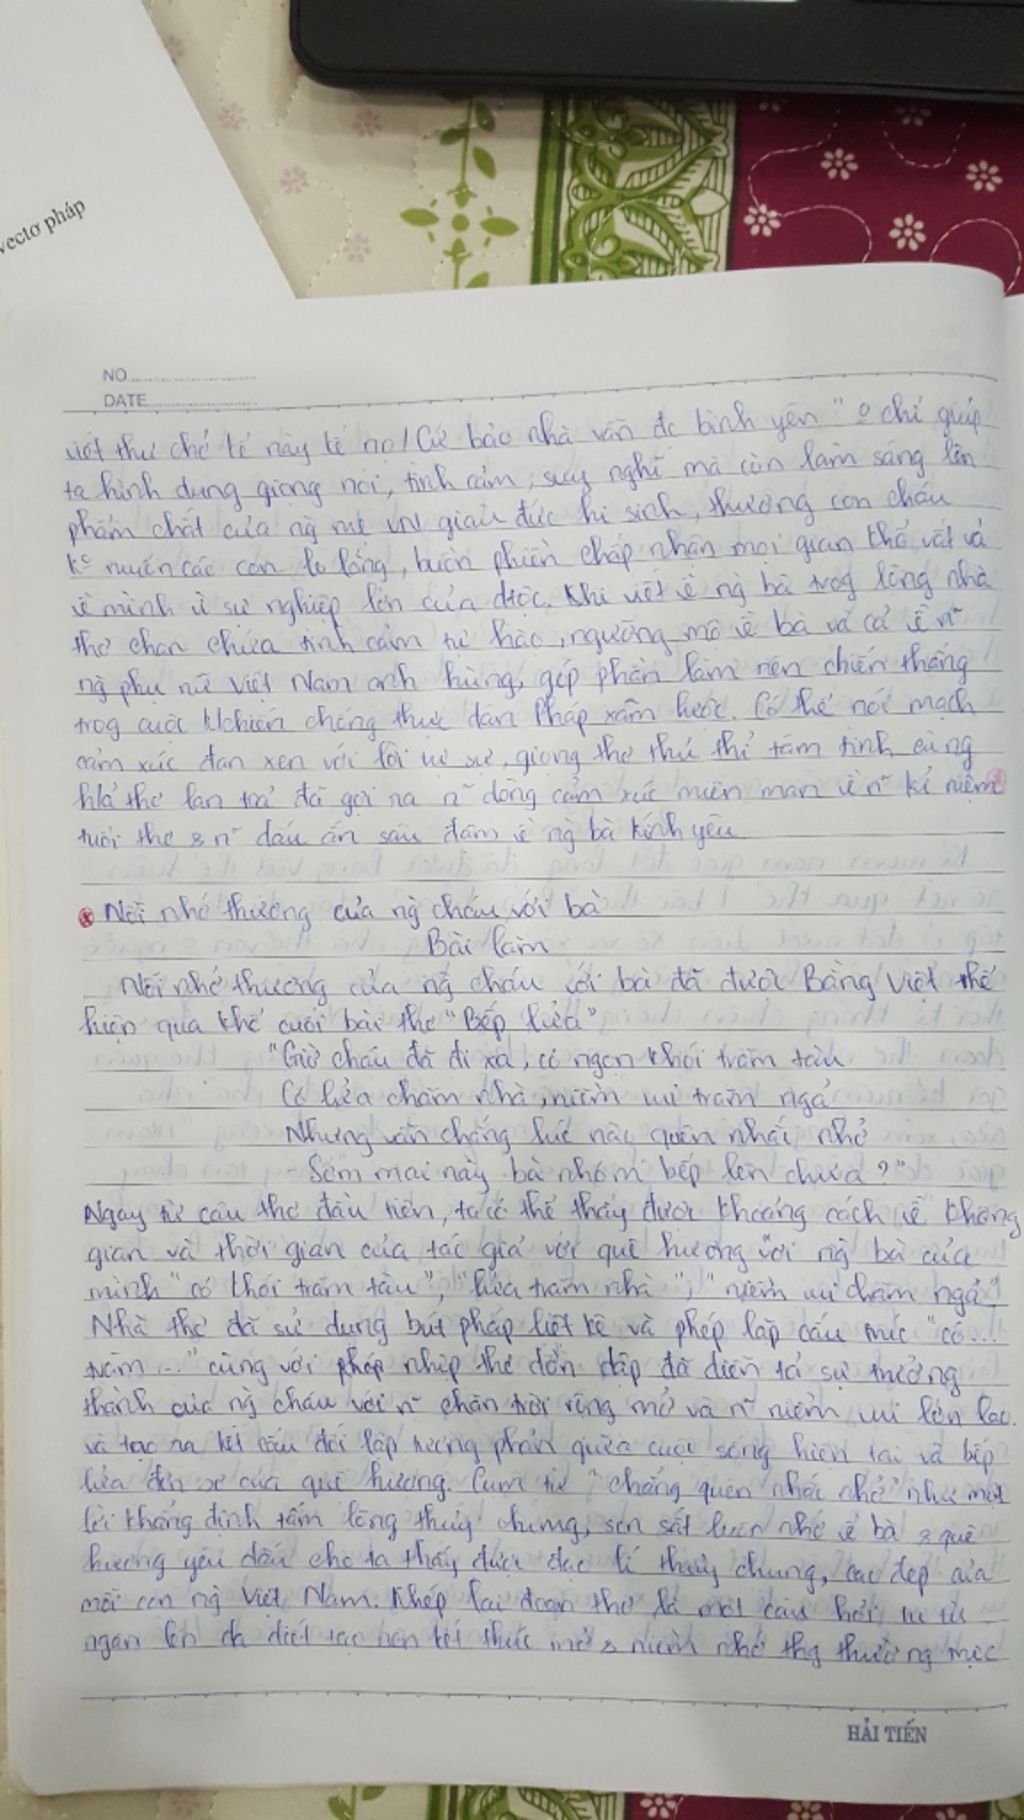 vectơ pháp
NO
DATE
viết thư chớ kể này kể nọ / Cứ bảo nhà vẫn đc bình yên " o chỉ giúp
ta hình dung giọng nói, tình cảm, suy nghĩ mà còn làm sáng lên
phẩm chất của ng mẹ VN giàu đức hi sinh, thương con cháu
ko muốn các con lo lắng, buồn phiền chấp nhận mọi gian khổ vất vả
về mình vì sự nghiệp lớn của đtộc. Khi viết về ng bà trog lòng nhà
thơ chan chứa tình cảm tự hào, ngưỡng mộ về bà và cả về n~
ng phụ nữ Việt Nam anh hùng, góp phần làm nên chiến thắng
trog cuộc kchiến chống thực dân Pháp xâm lược. Có thể nói mạch
cảm xúc đan xen với lời tự sự, giọng thơ thủ thỉ tâm tình cùng
hả thơ lan toả đã gợi ra n~ dòng cảm xúc miên man về n~ kỉ niệm
tuổi thơ & n~ dấu ấn sâu đậm về ng bà kính yêu
Nỗi nhớ thương của ng cháu với bà
Bài làm
Nỗi nhớ thương của ng cháu với bà đã được Bằng Việt thể
hiện qua khổ cuối bài thơ "Bếp lửa"
"Giờ cháu đã đi xa, có ngọn khói trăm tàu
Có lửa chăm nhà, niềm vui trăm ngả
Nhưng vẫn chẳng lúc nào quên nhắc nhở
- Sớm mai này bà nhóm bếp lên chưa ? "
Ngay từ câu thơ đầu tiên, ta có thể thấy được khoảng cách về không
gian và thời gian của tác giả với quê hương với ng bà của
mình " có khói trăm tàu ", "lửa trăm nhà ", "niềm vui chăm ngả"
Nhà thơ đã sử dụng bút pháp liệt kê và phép lặp cấu trúc "có ...
trăm ..." cùng với phép nhịp thơ dồn dập đã diễn tả sự trưởng
thành của ng cháu với n~ chân trời rộng mở và n~ niềm vui lớn lao.
và tạo ra kết cấu đối lập tương phản giữa cuộc sống hiện tại và bếp
lửa đơn sơ của quê hương. Cụm từ "chẳng quên nhắc nhở" như một
lời khẳng định tấm lòng thuỷ chung, son sắt luôn nhớ về bà & quê
hương yêu dấu cho ta thấy được đạo lí thuỷ chung, cao đẹp của
mỗi con ng Việt Nam. Khép lại đoạn thơ là một câu hỏi tu từ
ngân lên đã kết thúc mở & niềm nhớ thg thường mọc
HẢI TIẾN